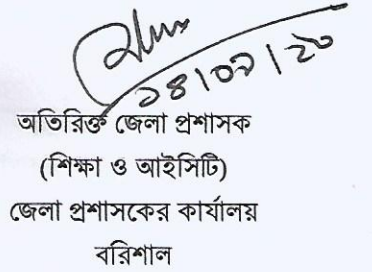 ১৪|০৯|২০
অতিরিক্ত জেলা প্রশাসক
(শিক্ষা ও আইসিটি)
জেলা প্রশাসকের কার্যালয়
বরিশাল